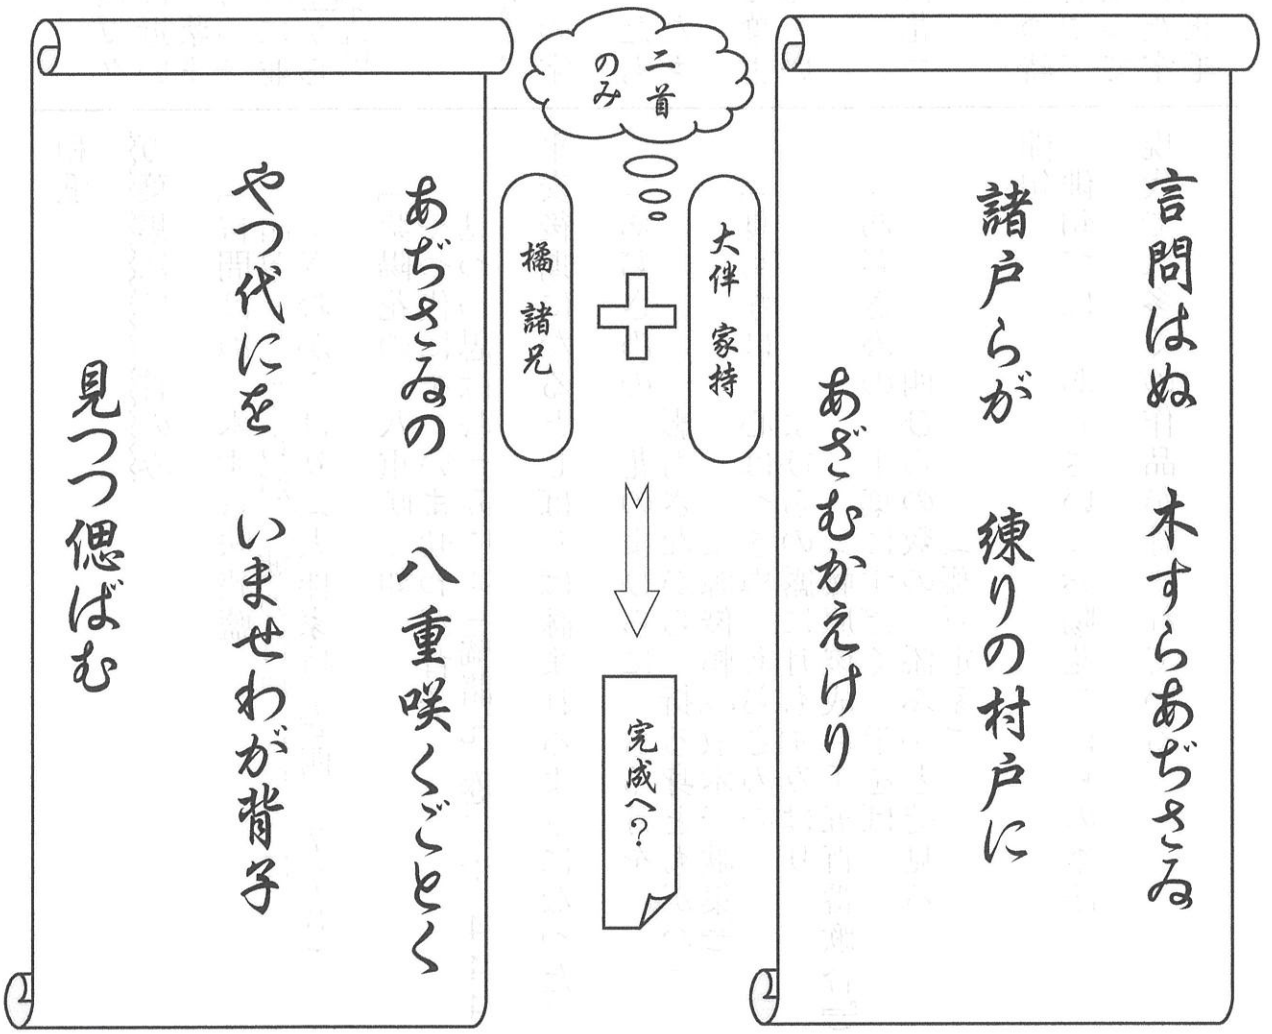 言問はぬ 木すらあぢさゐ
諸戸らが 練りの村戸に
あざむかえけり
二首
のみ
大伴 家持
橘 諸兄
完成へ?
あぢさゐの 八重咲くごとく
やつ代にを いませわが背子
見つつ偲ばむ